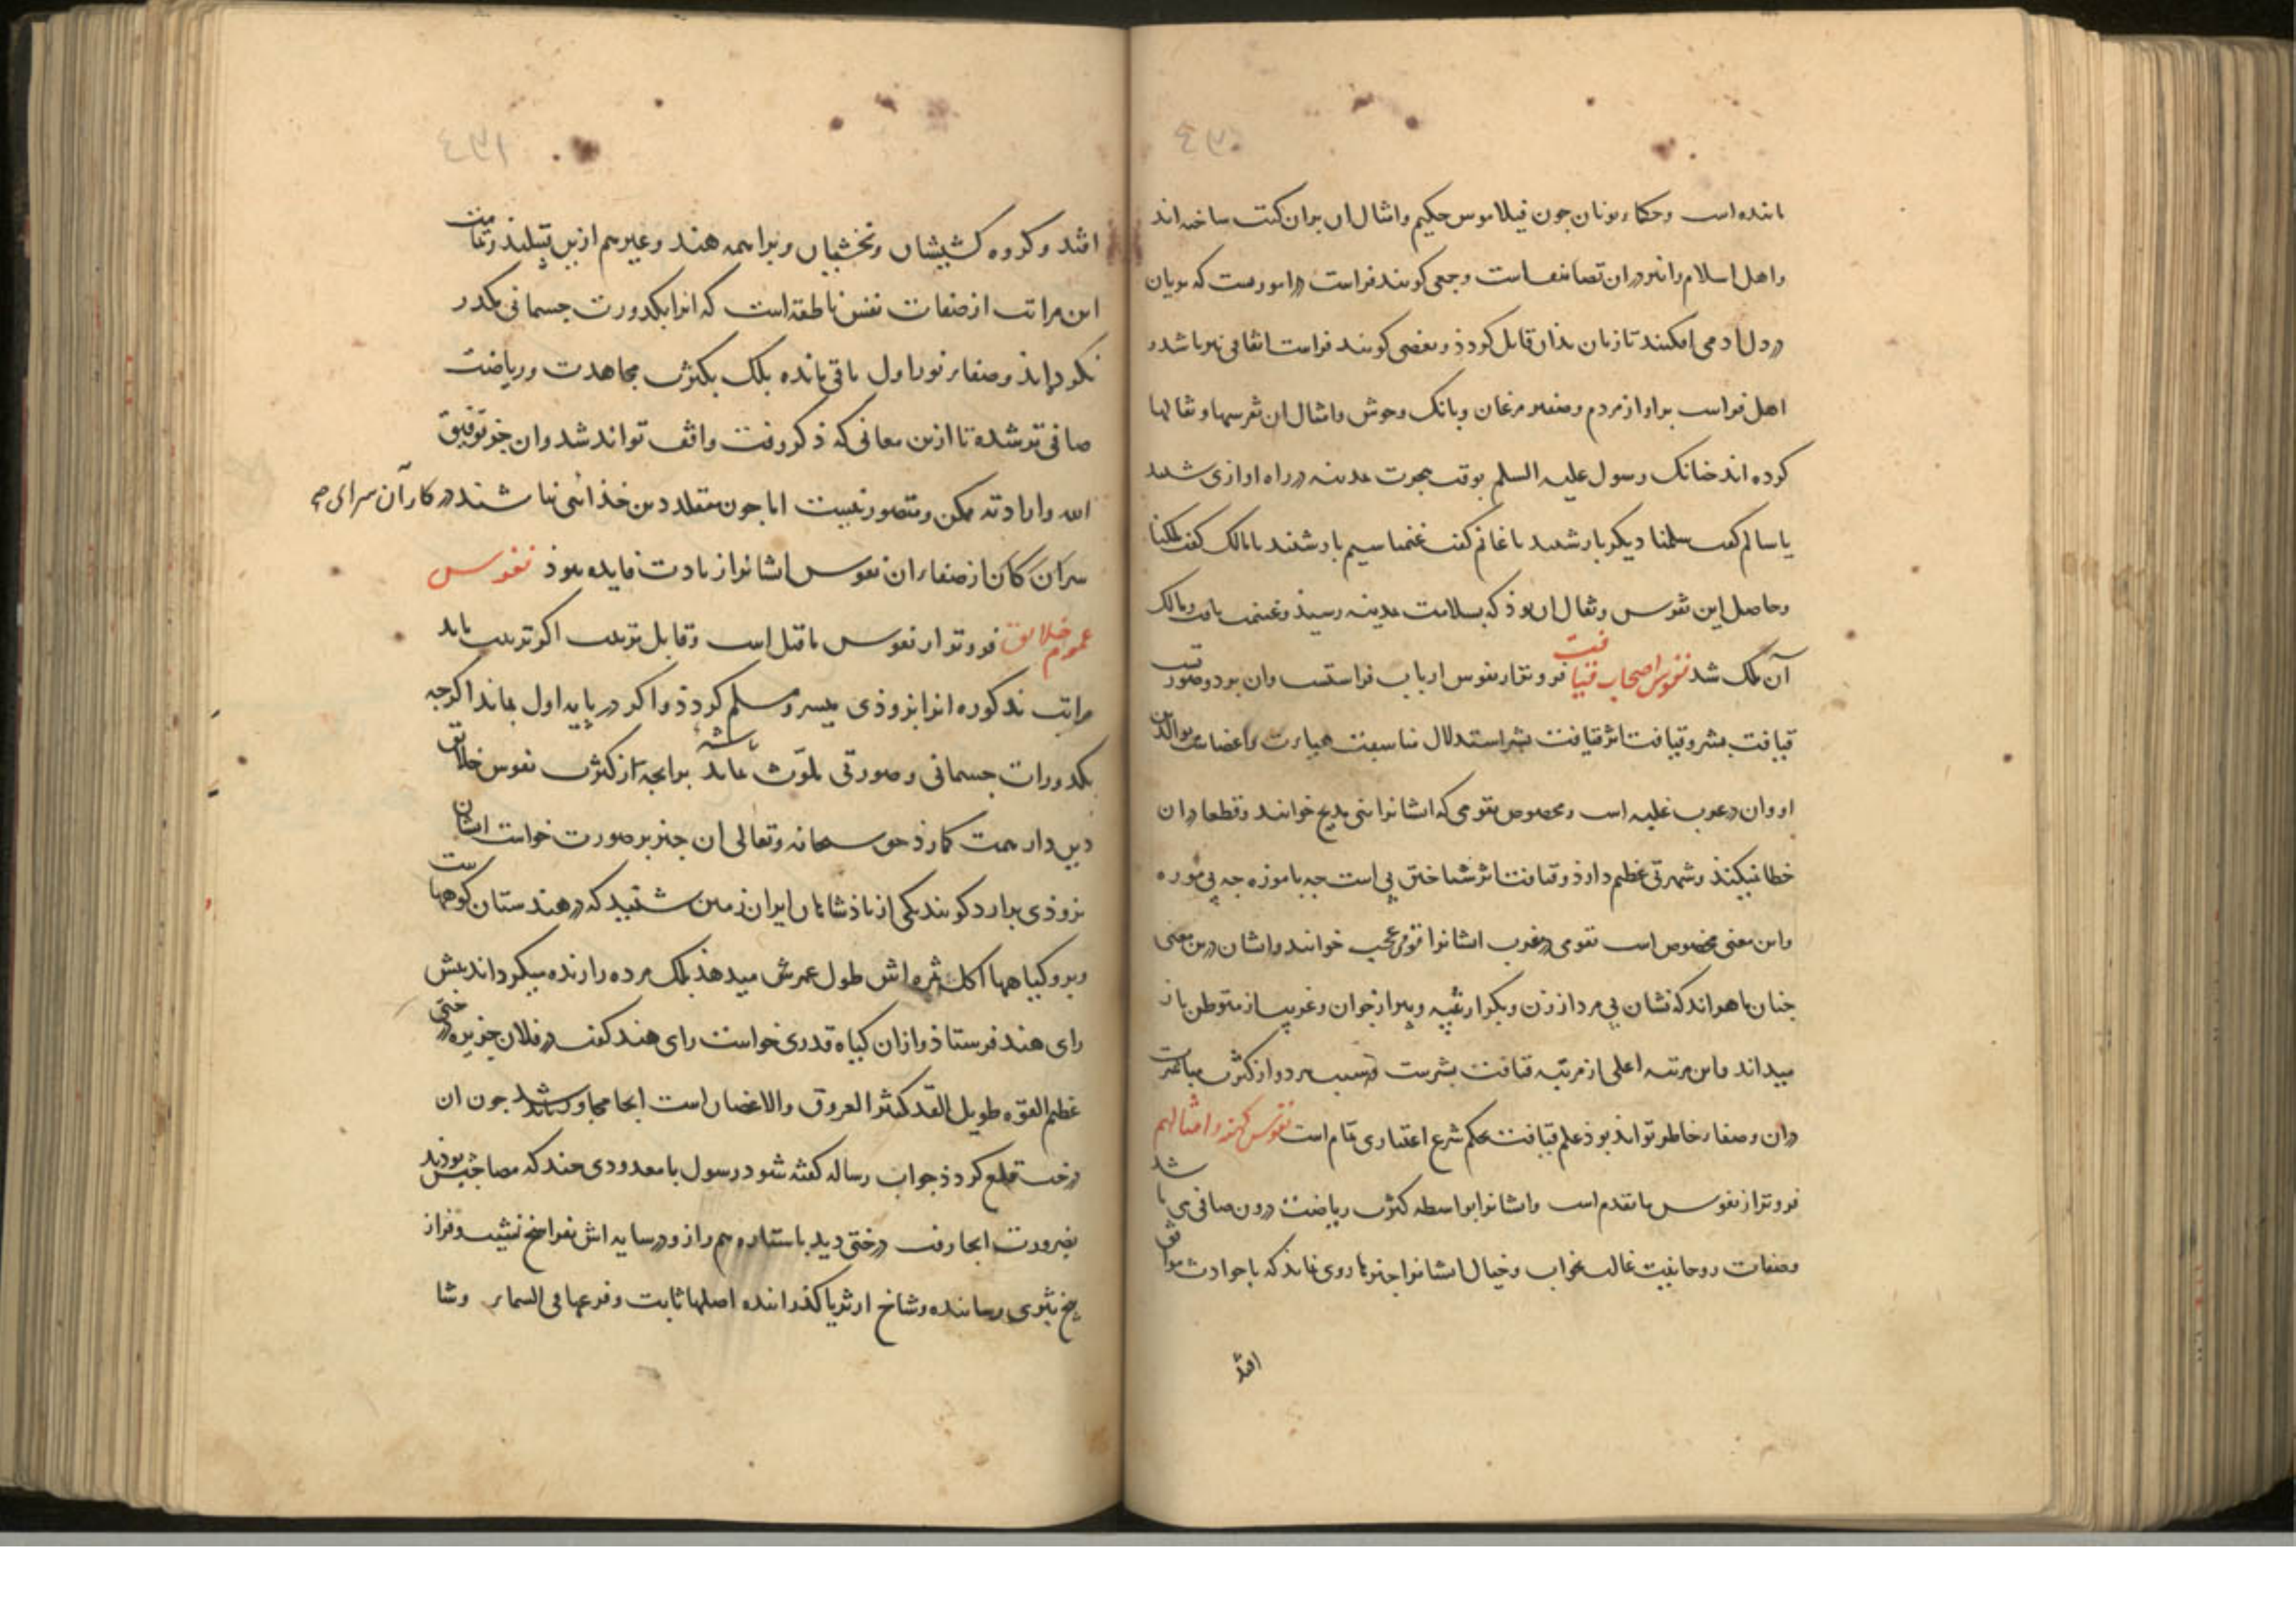 مانده است وحکماء یونان جون فیلاموس حکیم وامثال ان بران کتب ساخته اند
واهل اسلام را نیز دران تصانیف است وجمعی کویند فراست در امور هست که
در دل ادمی افکنند تا زبان بذان قابل کردذ وبعضی کویند فراست اتفاقی نیز باشد و
اهل فراست براواز مردم وصفیر مرغان وبانک وحوش وامثال ان تفرسها وتفالها
کرده اند جنانک رسول علیه السلم بوقت هجرت مدینه در راه اوازی شنید
یا سالم کفت سلمنا دیکر بار شنید یا غانم کفت غنمنا سیم بار شنید یا مالک کفت ملکنا
وحاصل این تفرس وتفال ان بوذ که بسلامت مدینه رسید وغنیمت یافت ومالک
آن ملک شد نفوس اصحاب قیافت فروتر از نفوس ارباب فراستست وان بر دو
قیافت بشر وقیافت اثر قیافت بشر استدلال مناسبت هیات واعضاء
او وان در عرب غلبه است ومخصوص بقومی که ایشانرا بنی مدلج خوانند وقطعا دران
خطا نمیکنند وشهرتی عظیم دارذ وقیافت اثر شناختن پی است جه با موزه جه بی موزه
واین معنی مخصوص است بقومی در غرب ایشانرا قومی عجب خوانند وایشان درین معنی
جنان ماهراند که نشان پی مرد از زن وبکر از ثیبه وپیر از جوان وغریب از متوطن باز
میدانند واین مرتبه اعلی از مرتبه قیافت بشریت وسبب هر دو از کثرت مباشرت
دران وصفاء خاطر تواند بوذ علم قیافت بحکم شرع اعتباری تمام است نفوس کهنه وامثالهم
فروتر از نفوس ما تقدم است وایشانرا بواسطه کثرت ریاضت درون صافی می باشد
وصفات روحانیت غالب بخواب وخیال ایشانرا جیزها روی نماید که با حوادث موافق
افتد
افتد وکروه کشیشان وبخشیان وبراهمه هند وغیرهم ازین قبیلند
این مراتب از صفات نفس ناطقه است که انرا بکدورت جسمانی مکدر
نکردانند وصفاء نور اول باقی مانده بلک بکثرت مجاهدت وریاضت
صافی تر شده تا ازین معانی که ذکر رفت واقف تواند شد وان جز بتوفیق
الله وارادته ممکن ومتصور نیست اما جون مقلد دین خذائی نباشند در کار آن سرای
سران کان از صفاء ان نفوس ایشانرا زیادت فایده نبوذ نفوس
عموم خلایق فروتر از نفوس ما قبل است وقابل تربیت اکر تربیت یابد
مراتب مذکوره انرا بزوذی میسر ومسلم کردذ واکر در پایه اول بماند اکرجه
بکدورات جسمانی وصورتی ملوث باشد برانجه از کثرت نفوس خلایق
دین دار همت کمارذ حق سبحانه وتعالی ان جیز بر صورت خواست ایشان
بزوذی برارد کویند یکی از پاذشاهان ایران زمین شنید که در هندستان کوهها
وبرو کیاهها اکل ثمره اش طول عمرش میدهذ بلک مرده را زنده میکرداند پیش
رای هند فرستاذ وازان کیاه قدری خواست رای هند کفت در فلان جزیره درختی
عظیم القوه طویل القد کثیر العروق والاغصان است انجا مجاور باشد جون ان
درخت قلع کردذ جواب رساله کفته شود رسول با معدودی جند که مصاحبش بوذند
بضرورت انجا رفت درختی دید با ستاره هم راز ودر سایه اش
بیخ بثری رسانیده وشاخ از ثریا کذرانیده اصلها ثابت وفرعها فی السماء